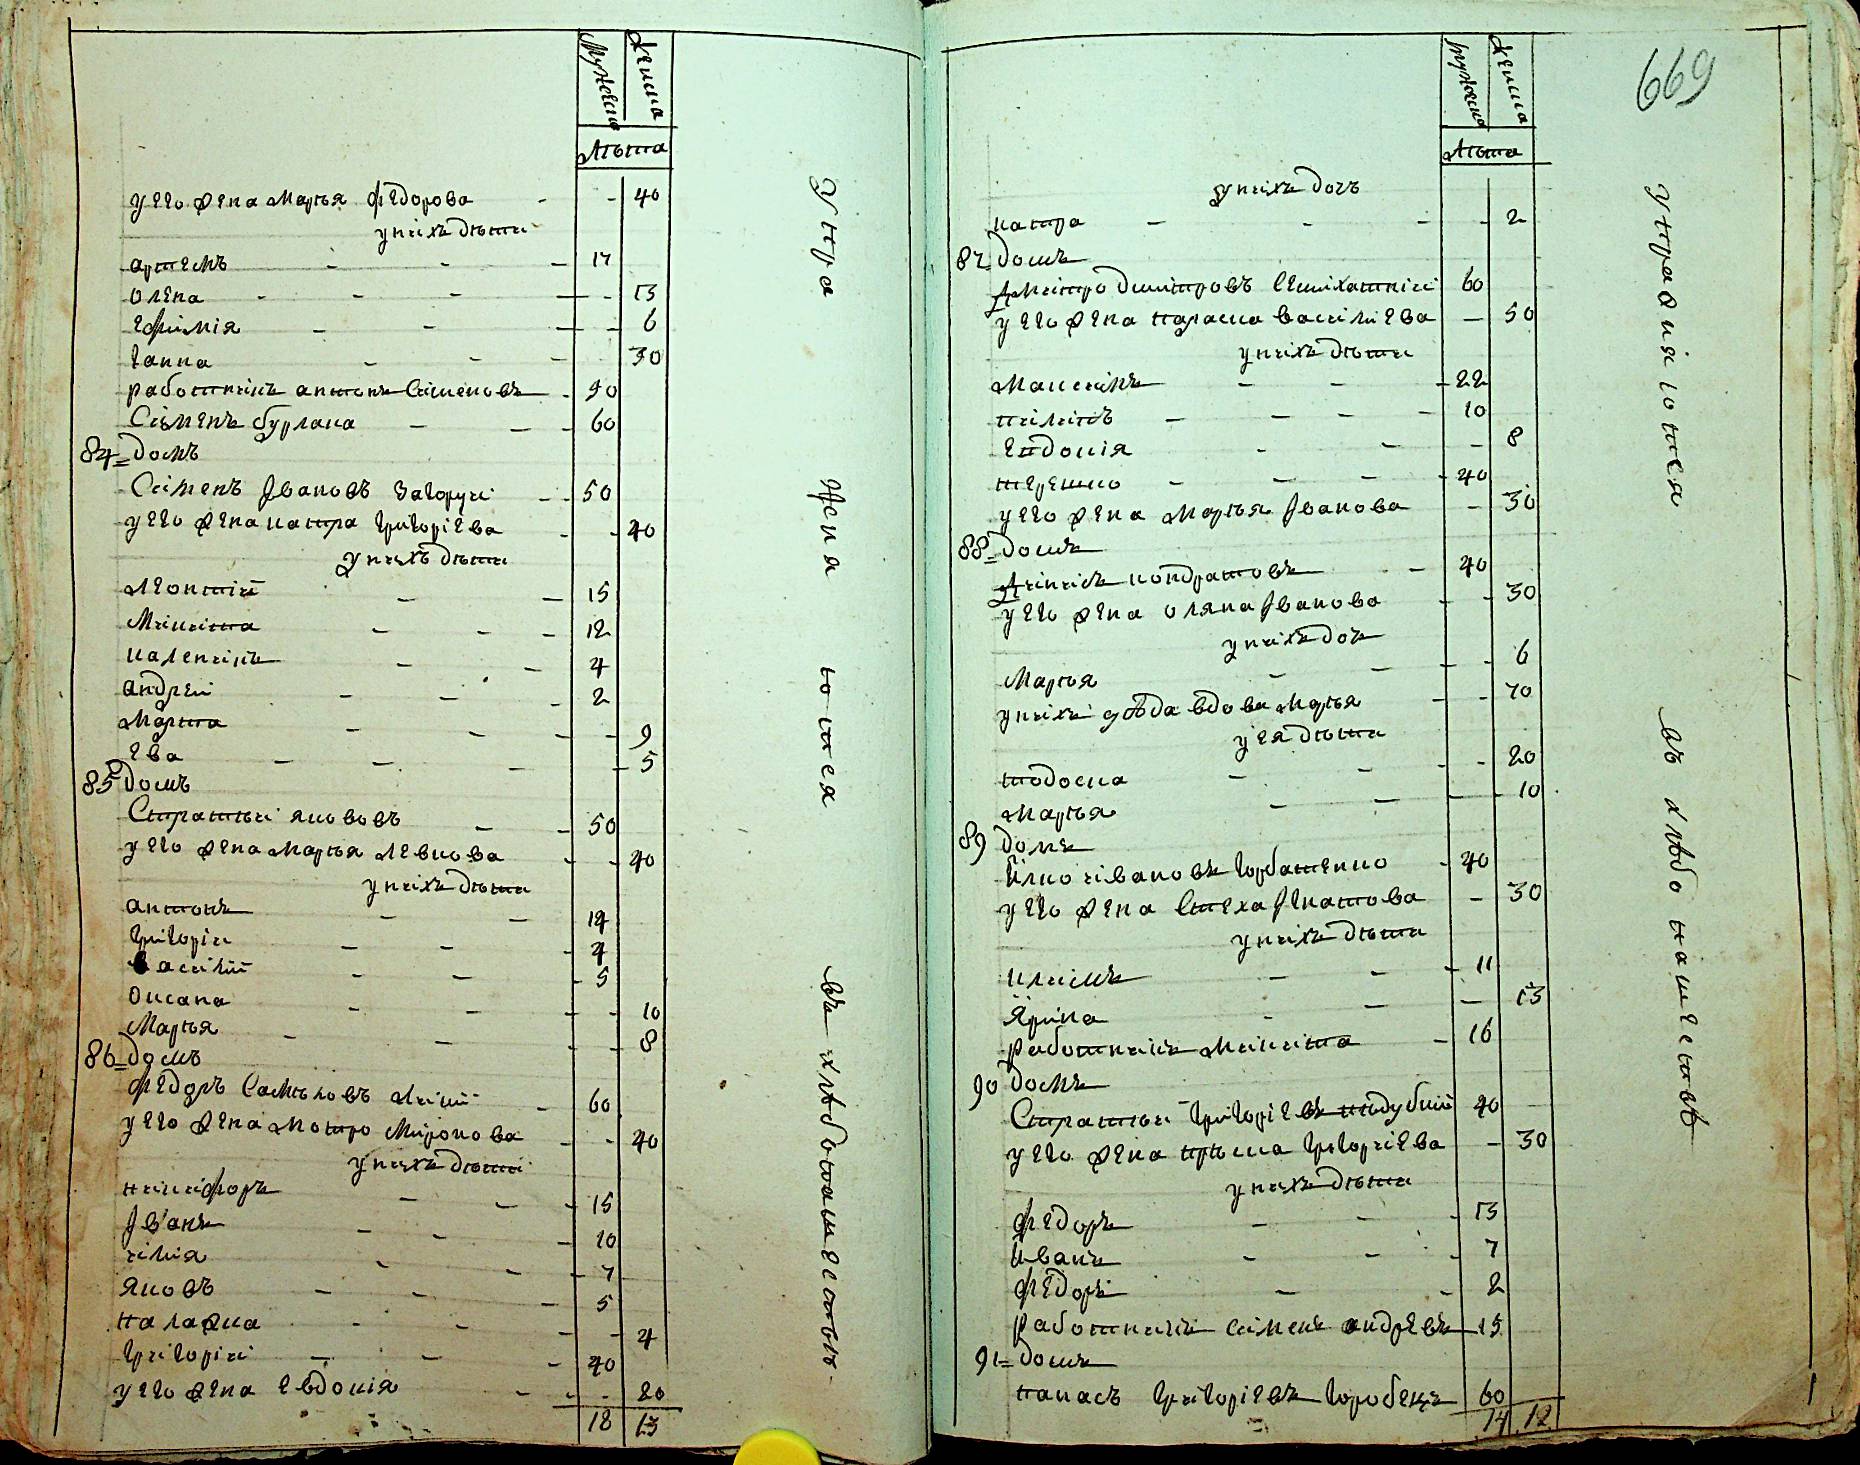 Мужеска Женска
Лѣта
у его жена Марья Федорова - - 40
у нихъ дѣти
артемъ - - - 17
олена - - - - 13
ефимія - - - - 6
ганна - - - 30
работникъ антонъ Сѣменовъ - 30
Сѣменъ бурлака - - - 60
84 = домъ
Сѣменъ Івановъ Загоруй - - 50
у его жена катра григоріева - - 40
у нихъ дѣти
леонтій - - 15
Микита - - - 12
каленикъ - - 4
андрей - - - 2
Марта - - - 9
Ева - - - - 5
85 домъ
Стратій яковъ - - 50
у его жена Марья левкова - - 40
у нихъ дѣти
антонъ - - 14
григорій - - 7
василій - - - 5
оксана - - - 10
Марья - - - - 8
86 = домъ
Федоръ Самъловъ - 60
у его жена Мотро Миронова - - 40
у нихъ дѣти
никифоръ - - 15
Іванъ - - - 10
илія - - - 7
яковъ - - - 5
палажка - - - - 4
григорій - - - 40
у его жена Евдокія - - - 20
18 13
Утра
жня
ютея
въ хлѣбопашествѣ
669
Мужеска Женска
Лѣта
у нихъ дочь
катра - - - - 2
87 домъ
Дмитро Димитровъ 60
у его жена параска василиева - 50
у нихъ дѣти
Максимъ - - - 22
пилипъ - - - - 10
Евдокія - - - 8
терешко - - - - 40
у его жена Марья Іванова - 30
88 = домъ
кондратовъ - - 40
у его жена оляна Іванова - - 30
у нихъ дочь
Марья - - - - 6
у нихъ вдова Марья - - 70
у ея дѣти
тодоска - - - - 20
Марья - - - - 10
89 домъ
илко ивановъ горбатенко - 40
у его жена Стеха Ігнатова - 30
у нихъ дѣти
климъ - - - 11
Ярина - - - 13
работникъ Микита - 16
90 домъ
Стратій григоріевъ 40
у его жена григориева - 30
у нихъ дѣти
Федоръ - - - 13
Иванъ - - - 7
Федоръ - - 2
работникъ сименъ андреевъ 15
91 = домъ
панасъ григоріевъ горобецъ 60
14 12
упражняютея
въ хлѣбопашествѣ